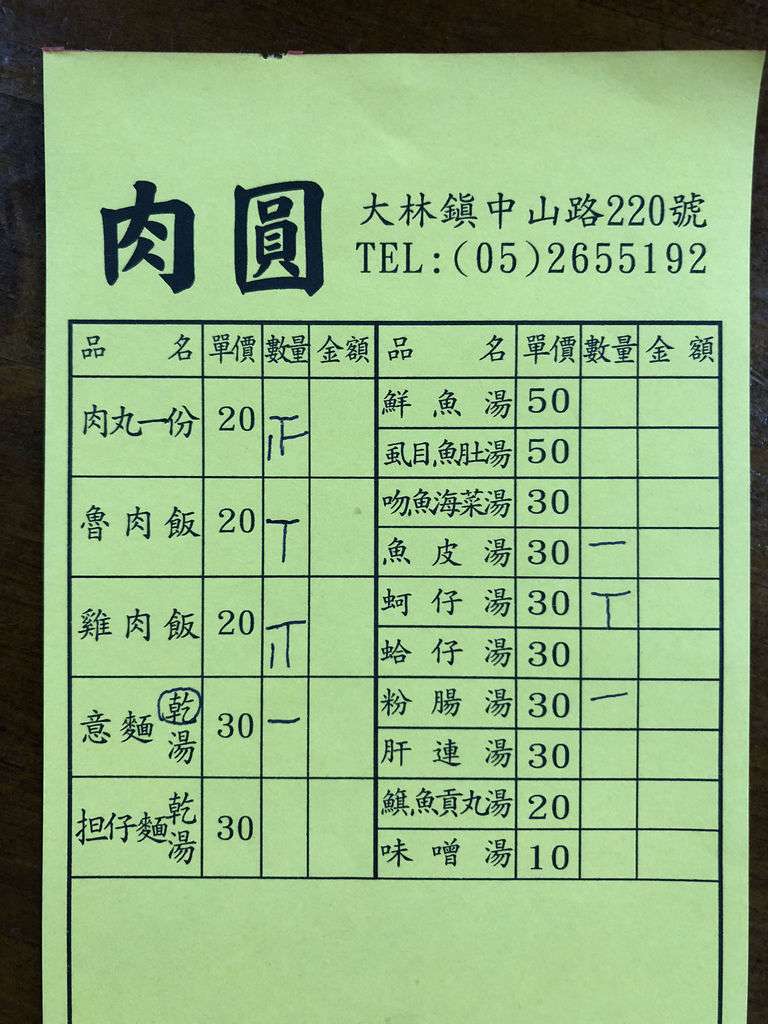 肉圓
大林鎮中山路220號
TEL:(05)2655192
品名 單價 數量 金額 品名 單價 數量 金額
肉丸一份 20
魯肉飯 20 丅
雞肉飯 20
意麵 乾 湯 30 一
担仔麵 乾 湯 30
鮮魚湯 50
虱目魚肚湯 50
吻魚海菜湯 30
魚皮湯 30 一
蚵仔湯 30 丅
蛤仔湯 30
粉腸湯 30 一
肝連湯 30
鱵魚貢丸湯 20
味噌湯 10